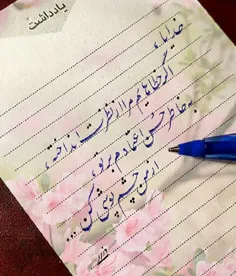 یادداشت
خدایا،
اگر خطاهایم مرا از نظرت انداخته،
به خاطر حسن اعتمادم بر تو،
از من چشم پوشی کن...